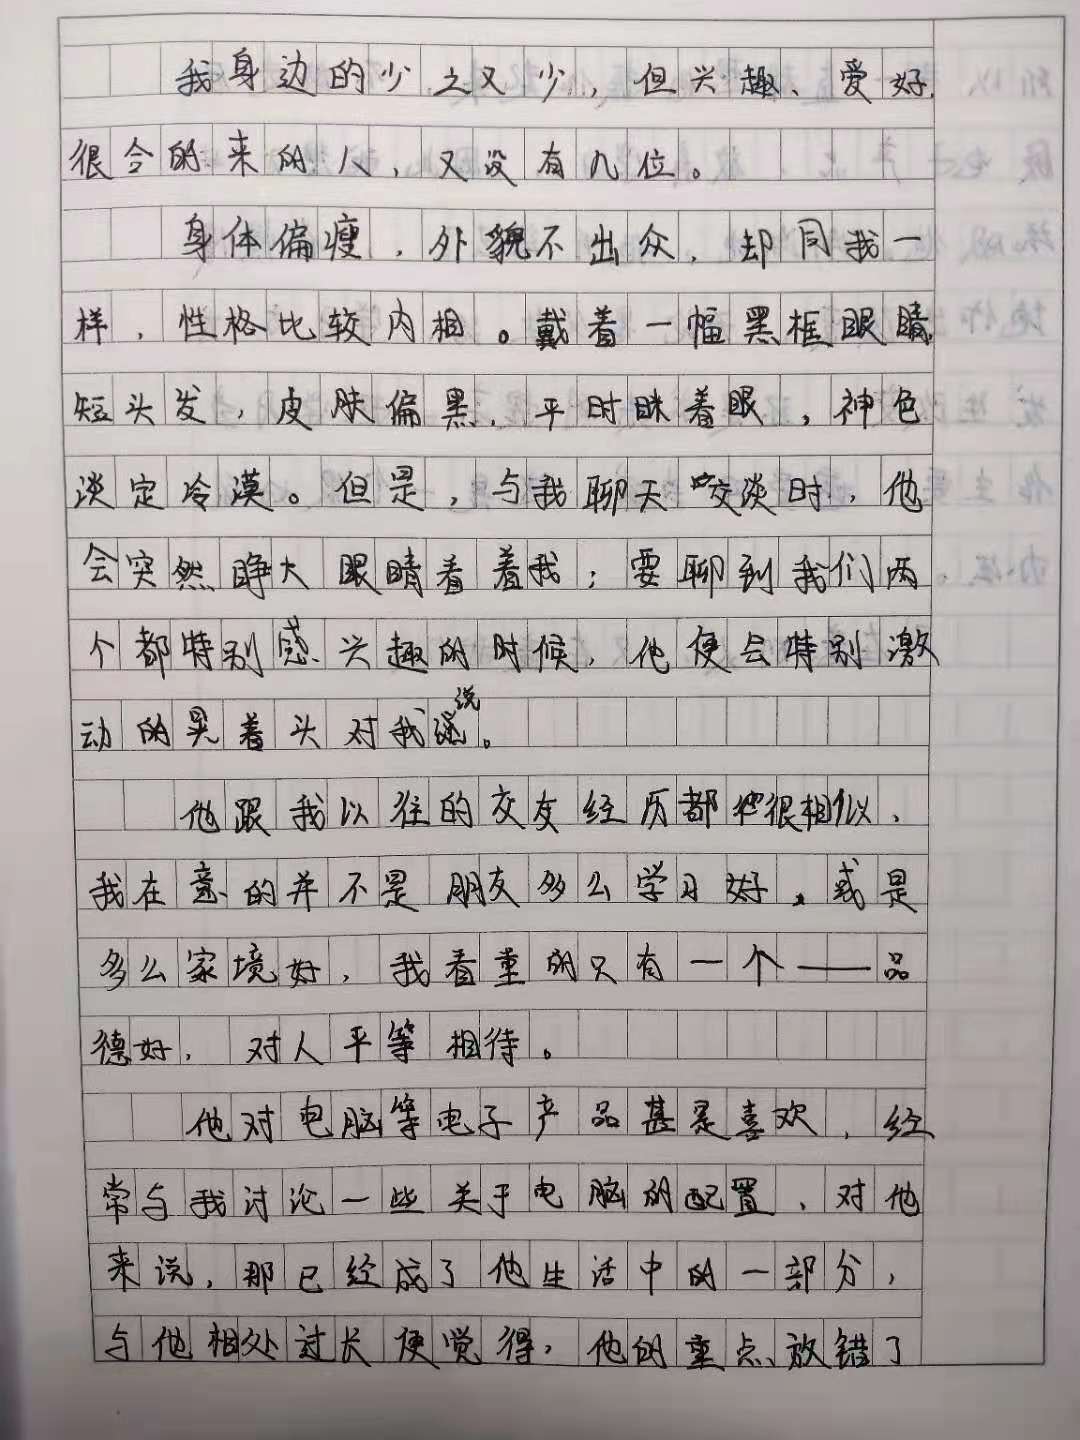 我身边的少之又少，但兴趣、爱好
很合的来的人，又没有几位。
身体偏瘦，外貌不出众，却同我一
样，性格比较内相。戴着一幅黑框眼睛
短头发，皮肤偏黑，平时眯着眼，神色
淡定冷漠。但是，与我聊天交谈时，他
会突然睁大眼睛看着我；要聊到我们两
个都特别感兴趣的时候，他便会特别激
动的晃着头对我说。
他跟我以往的交友经历都很相似，
我在意的并不是朋友多么学习好，或是
多么家境好，我看重的只有一个——品
德好，对人平等相待。
他对电脑等电子产品甚是喜欢，经
常与我讨论一些关于电脑的配置，对他
来说，那已经成了他生活中的一部分，
与他相处过长便觉得，他的重点放错了